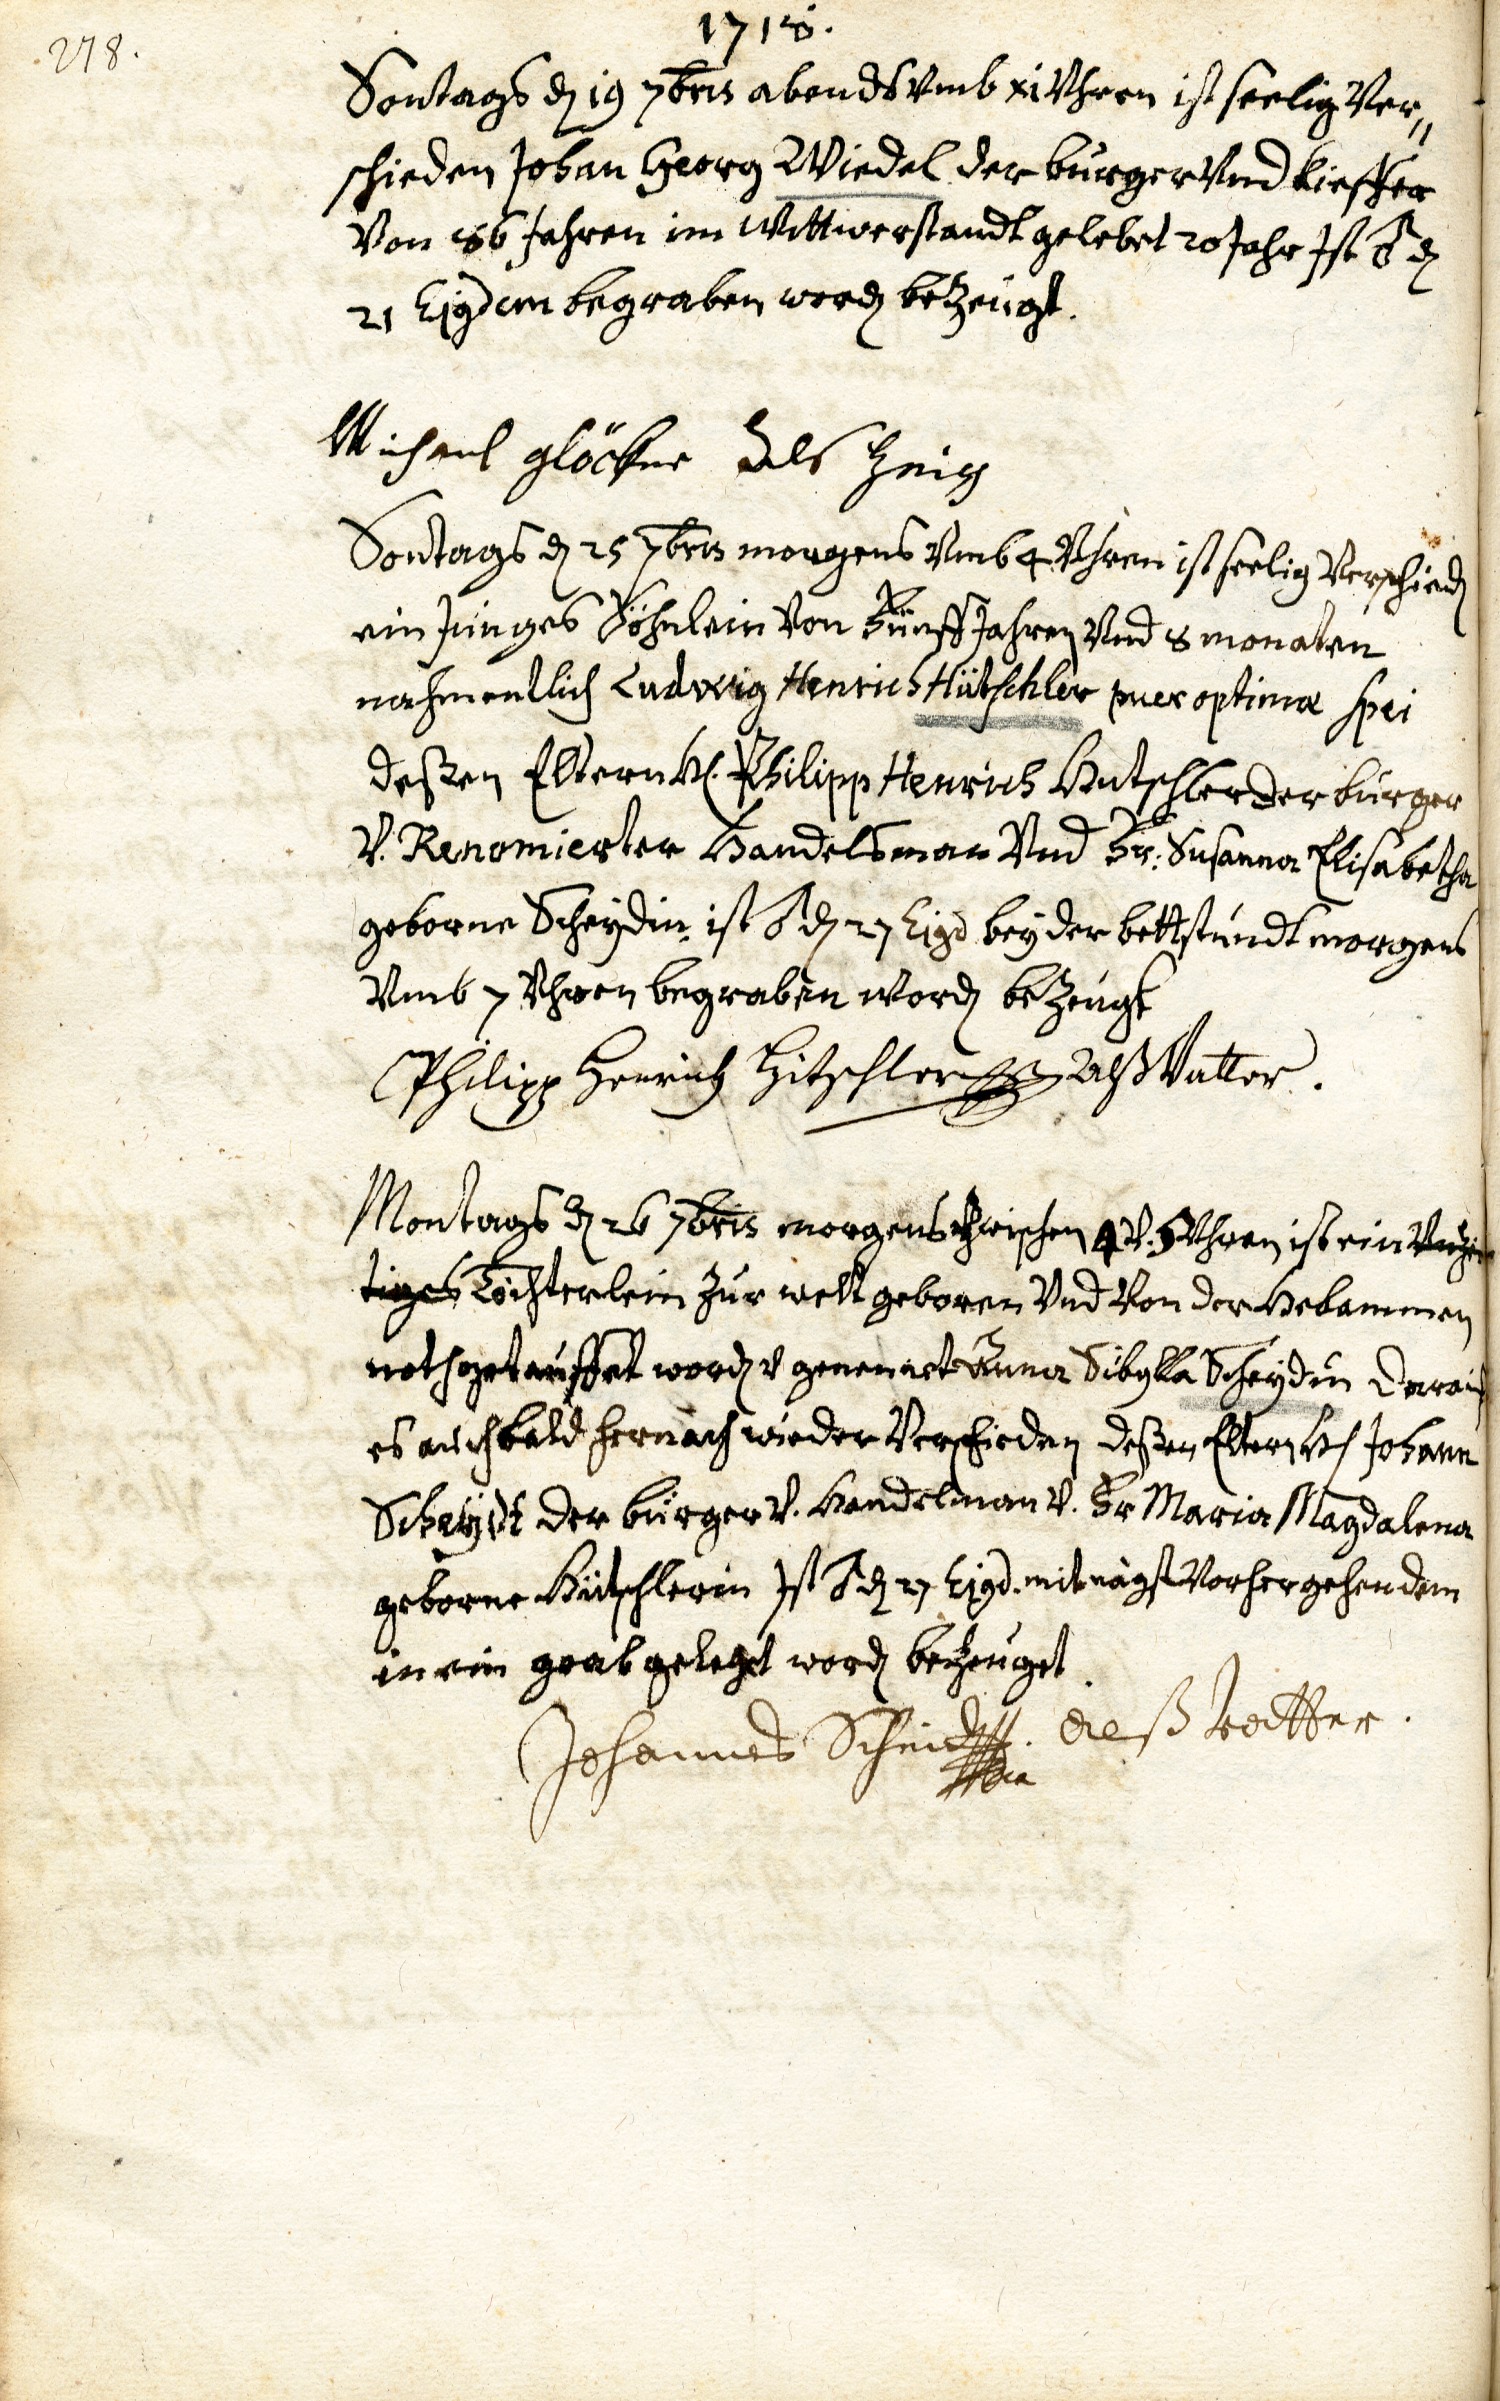 278.
1718.
Sontags dn 19 7bris abends vmb xi Vhren ist seelig Ver„
schieden Johan Georg Wiedel der burger vnd kieffer
von 86 Jahren im Wittwerstandt gelebet 20 Jahr Jst dn
21 Ejusdem begraben word bezeugt.
Michael glöckner als zeig
Sontags dn 25 7bris morgens vmb 4 Vhren ist seelig verschied
ein Junges Söhnlein von Fünff Jahren vnd 8 monaten
nahmentlich Ludwig Henrich Hütschler puer optimæ spei
deßen Eltern H. Philipp Henrich Hutschler der burger
v. Renomierter Handelsman vnd Fr: Susanna Elisabetha
geborne Scheydin, ist dn 27 Ejusd bey der bettstundt morgens
vmb 7 Vhren begraben word bezeugt
Philipp Henrich Hitschler alß Vatter.
Montags dn 26 7bris morgens zwischen 4 v. 5 Vhren ist ein vnzei
tiges Töchterlein zur welt geboren vnd von der Hebammen
nothgetauffet word v genennet Anna Sibylla Scheydin darauf
es auch bald hernach wieder verschieden deßen Eltern H Johann
Scheydt der bürger v. Handelman v. Fr Maria Magdalena
geborne Hütschlerin Jst dn 27 Ejusd. mit nägst vorhergehendem
in ein grab gelegt word bezeuget
Johannes Scheidt alß vatter.